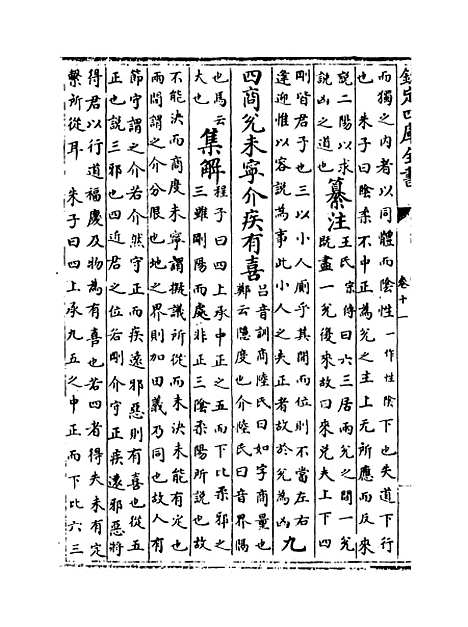 欽定四庫全書
卷十一
而獨之内者以同體而陰性一作性陰下也失道下行
也　朱子曰陰柔不中正為兌之主上无所應而反來
說二陽以求
說凶之道也
纂注
王氏宗傳曰六三居兩兌之間一兌
既盡一兌復來故曰來兌夫上下四
剛皆君子也三以小人廁乎其間而位則不當左右
逢迎惟以容說為事此小人之失正者故於兌為凶
九
四商兌未寧介疾有喜
呂音訓商陸氏曰如字商量也
鄭云隱度也介陸氏曰音界隔
也馬云
大也
集解
程子曰四上承中正之五而下比柔邪之
三雖剛陽而處非正三陰柔陽所說也故
不能決而商度未寧謂擬議所從而未決未能有定也
兩間謂之介分限也地之界則加田義乃同也故人有
節守謂之介若介然守正而疾遠邪惡則有喜也從五
正也說三邪也四近君之位若剛介守正疾遠邪惡將
得君以行道福慶及物為有喜也若四者得失未有定
繫所從耳　朱子曰四上承九五之中正而下比六三